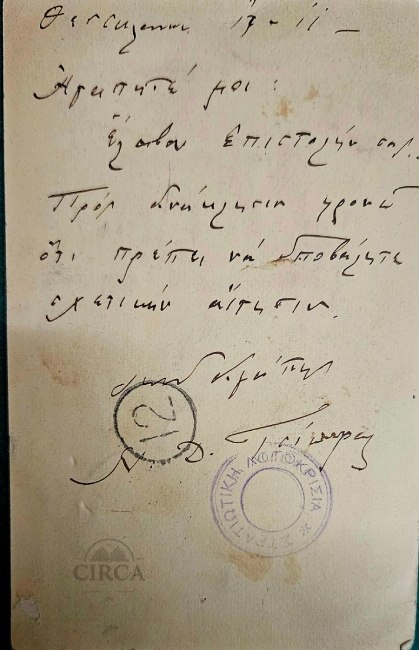 Θεσσαλονίκη 17-11
Αγαπητέ μοι:
Ἔλαβον ἐπιστολήν σας.
Πρὸς ἀνάκλησιν φρονῶ
ὅτι πρέπει νά ὑποβάλητε
σχετικήν αἴτησιν.
12
Ν. Δ.
ΣΤΡΑΤΙΩΤΙΚΗ ΛΟΓΟΚΡΙΣΙΑ
CIRCA